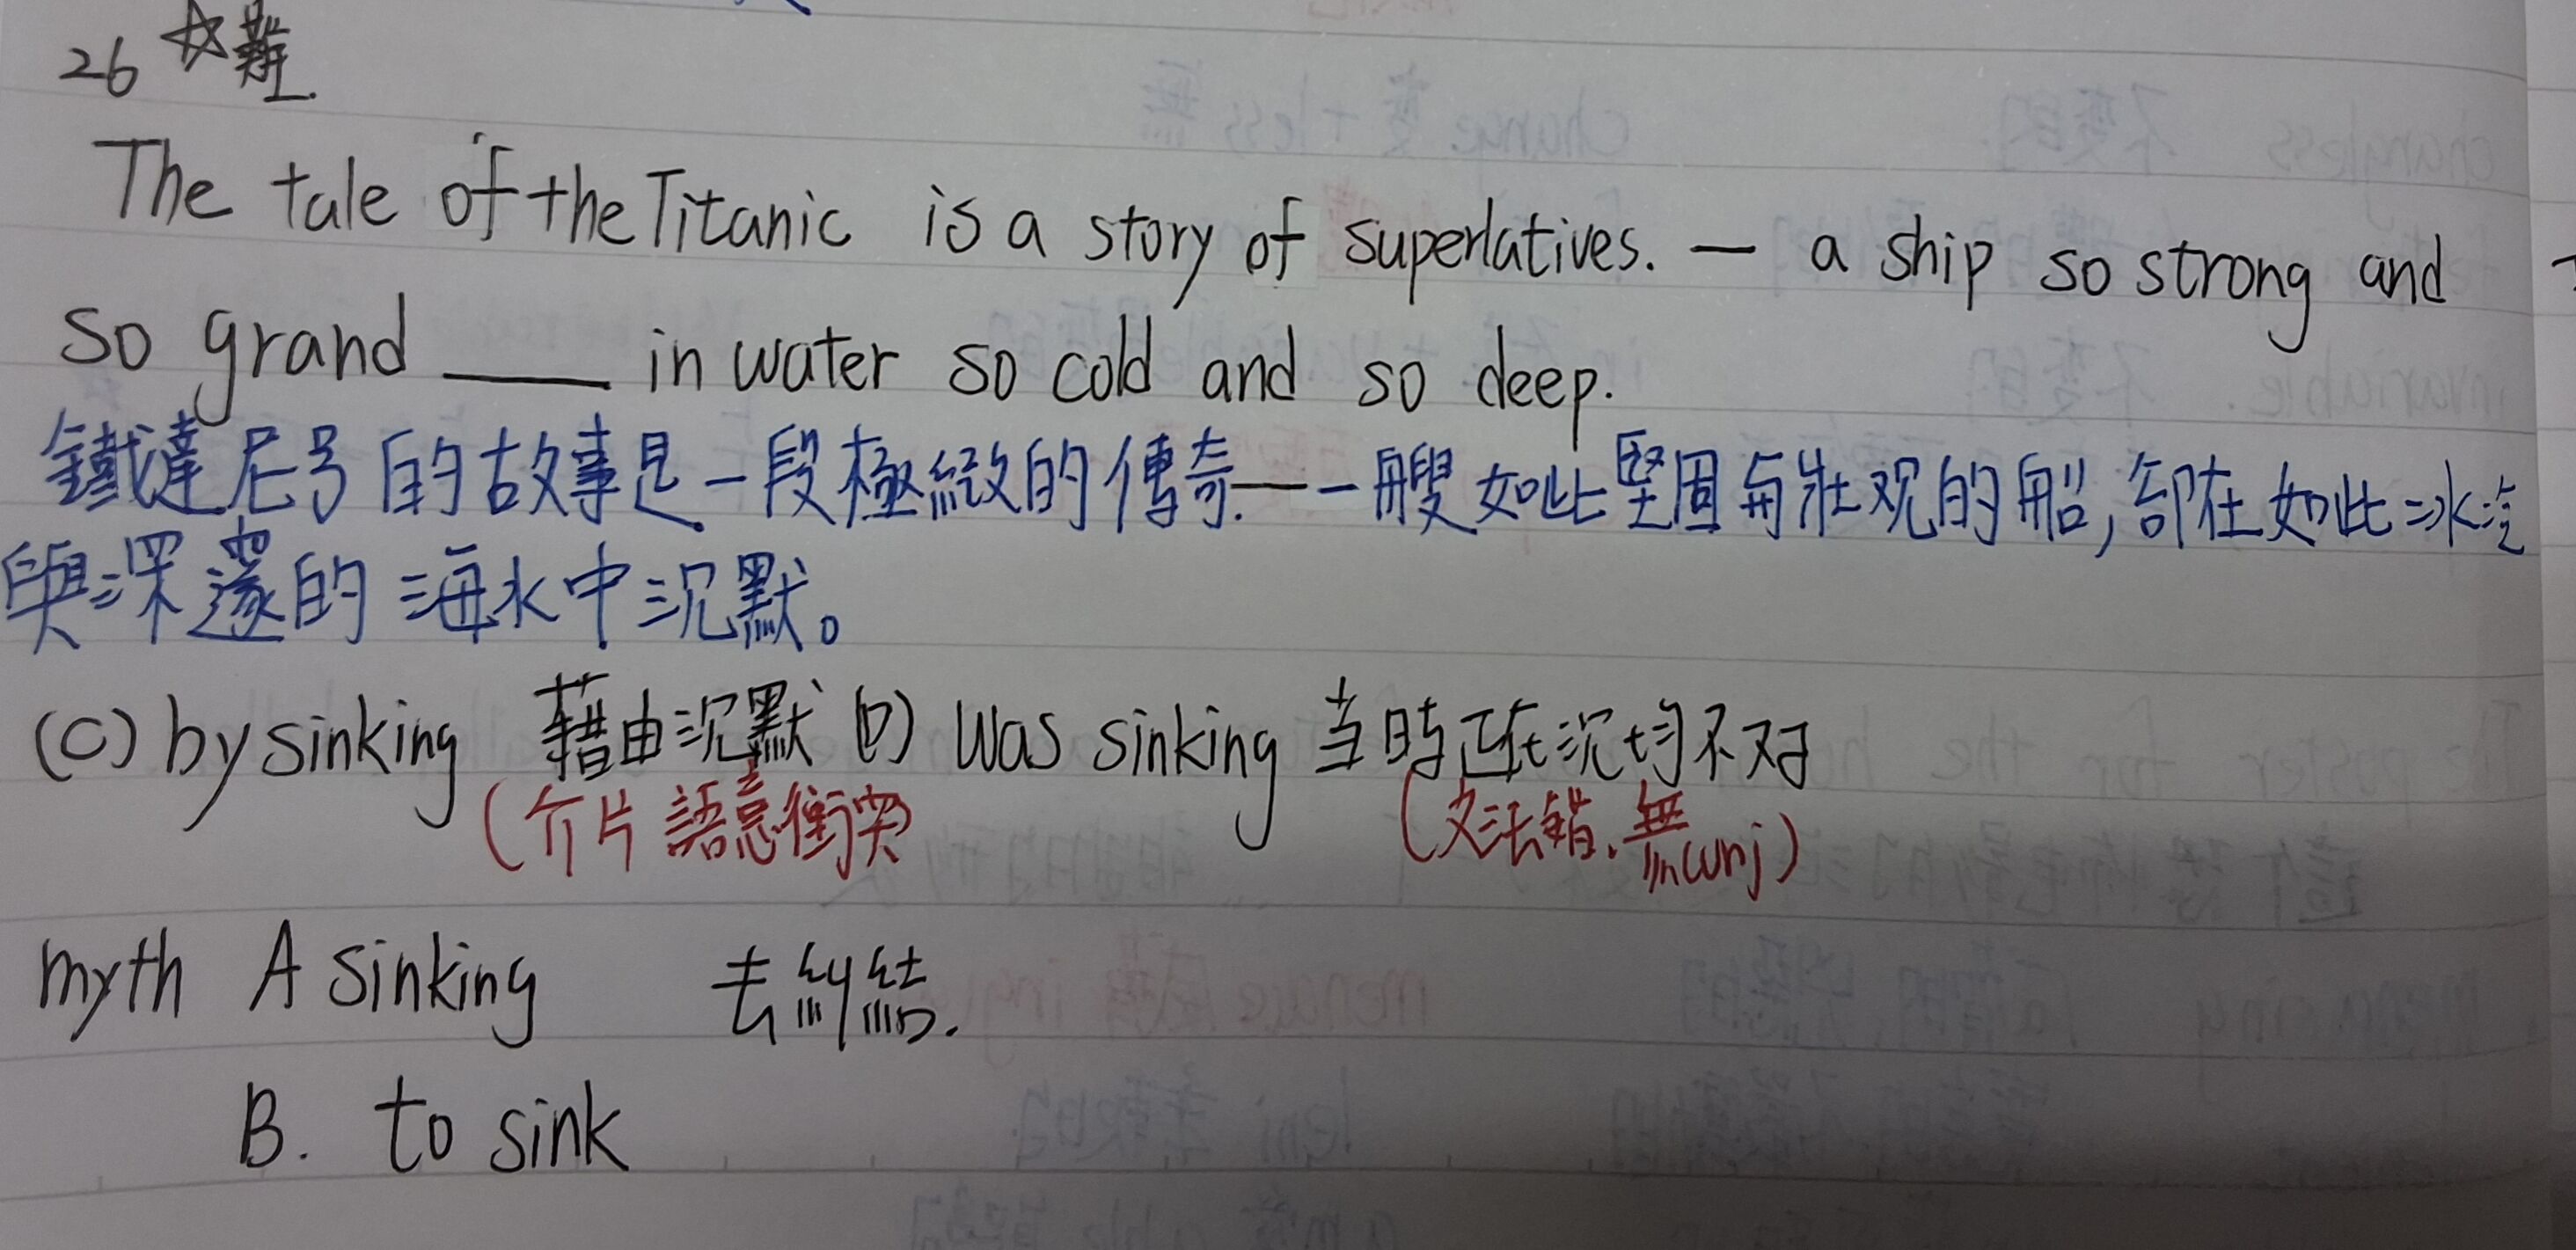 26 ☆難.
The tale of the Titanic is a story of superlatives. — a ship so strong and
so grand ____ in water so cold and so deep.
鐵達尼号的故事是一段極緻的傳奇——一艘如此堅固与壯观的船,卻在如此冰冷
與深邃的海水中沉默。
(C) by sinking 藉由沉默 (D) was sinking 当時正在沉均不对
(介片語意衝突 (文法錯.無conj)
myth A sinking 去糾結.
B. to sink